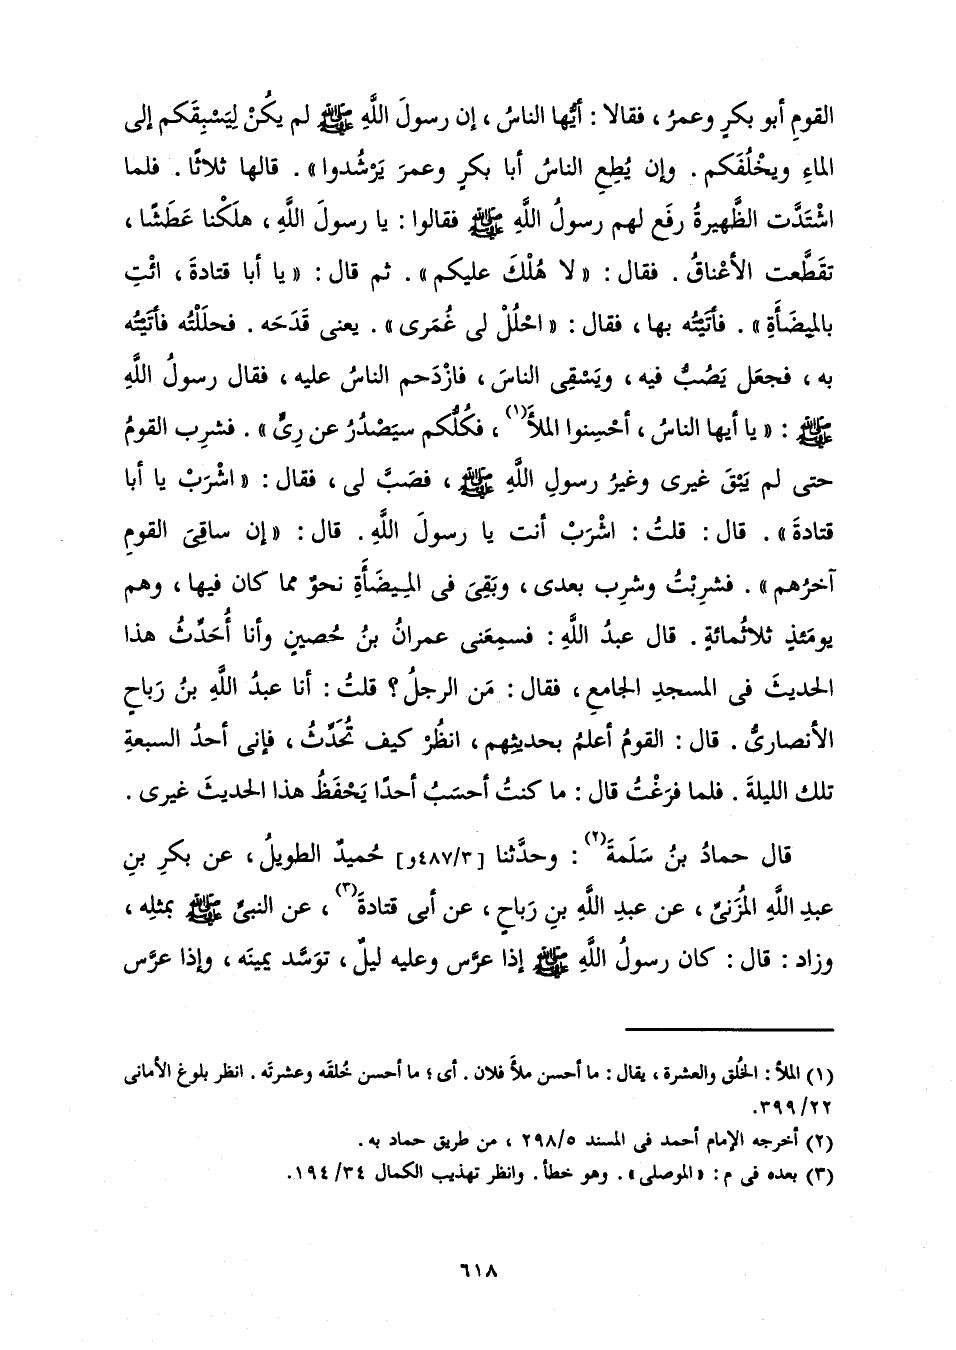 القومِ أبو بكرٍ وعمرُ ، فقالا : أيُّها الناسُ ، إن رسولَ اللَّهِ ﷺ لم يكُنْ لِيَسْبِقَكم إلى
الماءِ ويخْلُفَكم . وإن يُطِعِ الناسُ أبا بكرٍ وعمرَ يَرْشُدوا» . قالها ثلاثًا . فلما
اشْتَدَّت الظَّهيرةُ رفَع لهم رسولُ اللَّهِ ﷺ فقالوا : يا رسولَ اللَّهِ ، هلَكْنا عَطَشًا ،
تقَطَّعت الأعْناقُ . فقال : «لا هُلْكَ عليكم» . ثم قال : «يا أبا قتادةَ ، ائْتِ
بالمِيضَأَةِ» . فأتَيْتُه بها ، فقال : «احْلُلْ لى غُمَرِى» . يعنى قَدَحَه . فحلَلْتُه فأتَيْتُه
به ، فجعَل يَصُبُّ فيه ، ويَسْقِى الناسَ ، فازْدَحم الناسُ عليه ، فقال رسولُ اللَّهِ
ﷺ : «يا أيها الناسُ ، أحْسِنوا الملأَ(١) ، فكُلُّكم سيَصْدُرُ عن رِىٍّ» . فشرِب القومُ
حتى لم يَبْقَ غيرى وغيرُ رسولِ اللَّهِ ﷺ ، فصَبَّ لى ، فقال : «اشْرَبْ يا أبا
قتادةَ» . قال : قلتُ : اشْرَبْ أنت يا رسولَ اللَّهِ . قال : «إن ساقِىَ القومِ
آخرُهم» . فشرِبْتُ وشرِب بعدى ، وبَقِىَ فى المِيضَأَةِ نحوٌ مما كان فيها ، وهم
يومَئذٍ ثلاثُمائةٍ . قال عبدُ اللَّهِ : فسمِعَنى عمرانُ بنُ حُصينٍ وأنا أُحَدِّثُ هذا
الحديثَ فى المسجدِ الجامعِ ، فقال : مَن الرجلُ ؟ قلتُ : أنا عبدُ اللَّهِ بنُ رَباحٍ
الأنصارىُّ . قال : القومُ أعلمُ بحديثِهم ، انظُرْ كيف تُحَدِّثُ ، فإنى أحدُ السبعةِ
تلك الليلةَ . فلما فرَغْتُ قال : ما كنتُ أحسَبُ أحدًا يَحْفَظُ هذا الحديثَ غيرى .
قال حمادُ بنُ سَلَمةَ(٢) : وحدَّثنا [٤٨٧/٣و] حُميدٌ الطويلُ ، عن بكرِ بنِ
عبدِ اللَّهِ المُزَنىِّ ، عن عبدِ اللَّهِ بنِ رَباحٍ ، عن أبى قتادةَ(٣) ، عن النبىِّ ﷺ بمثلِه ،
وزاد : قال : كان رسولُ اللَّهِ ﷺ إذا عرَّس وعليه ليلٌ ، توَسَّد يمينَه ، وإذا عرَّس
(١) الملأ : الخُلق والعشرة ، يقال : ما أحسن ملأَ فلان . أى ؛ ما أحسن خُلقَه وعشرتَه . انظر بلوغ الأمانى
٣٩٩/٢٢.
(٢) أخرجه الإمام أحمد فى المسند ٢٩٨/٥ ، من طريق حماد به .
(٣) بعده فى م : «الموصلى» . وهو خطأ . وانظر تهذيب الكمال ١٩٤/٣٤.
٦١٨